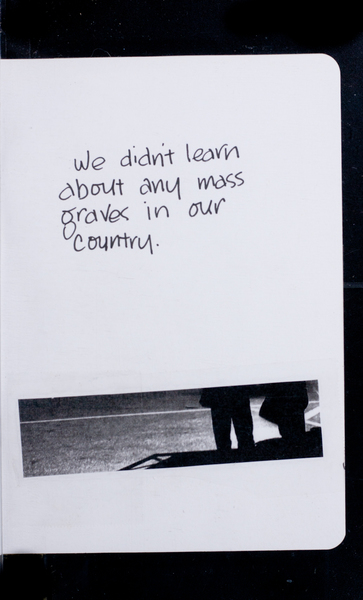 We didn't learn
about any mass
graves in our
country.